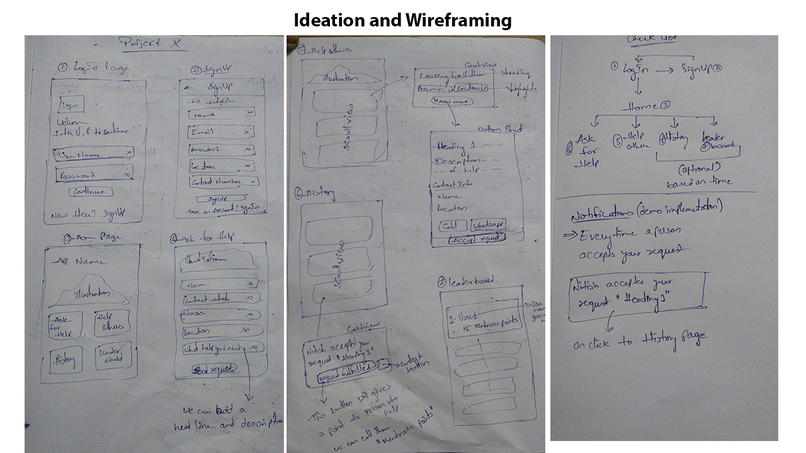 Ideation and Wireframing
Project X
① LogIn Page
Logo
Welcome
New User? SignUp
Password
Continue
② SignUp
SignUp
Name
Email
Password
Location
Contact Number
SignUp
③ Home Page
App Name
Illustration
Ask for Help
Help Others
History
④ Ask for Help
Illustration
Name
Location
What help you need
Send request
we can add a
head line and description
⑤ Help others
Illustration
Scroll View
Card view
Looking for
Know more
Heading
Highlights
Bottom Sheet
Heading 1
Description
of help
Contact Info
Name
Location
Call
Whatsapp
Accept request
⑥ History
Scroll View
Card View
Nitish accepts your
request "Heading 1"
request fulfilled
contact
button
This button will give
a point to person who
help
we can call them
"Kindness points"
⑦ leaderboard
1. User
15 kindness points
Check List
① LogIn → SignUp ②
Home ③
④ Ask
for
Help
⑤ Help
other
⑥ History
leader
board
(optional)
based on time
Notifications (demo implementation)
⇒ Everytime a person
accepts your request
Nitish accepts your
request "Heading 1"
on click to History page